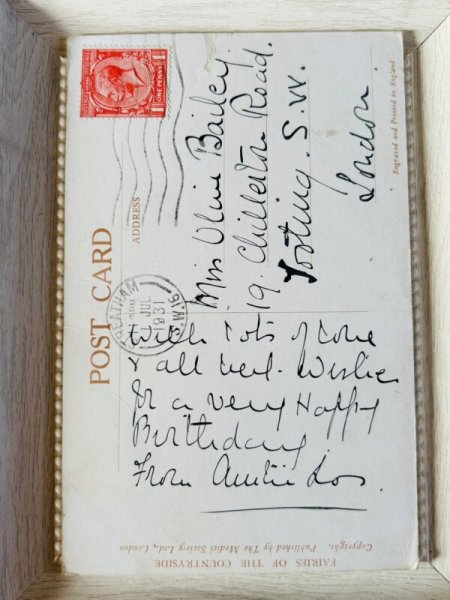 POST CARD
ADDRESS
ONE PENNY
STREATHAM
JUL
1931
S.W.16
Miss Olive Bailey
19. Chillerton Road.
Tooting. S.W.
London.
Engraved and Printed in England
With lots of love
& all best Wishes
for a very Happy
Birthday
From Auntie
Copyright. Published by The Medici Society Ltd., London
FAIRIES OF THE COUNTRYSIDE